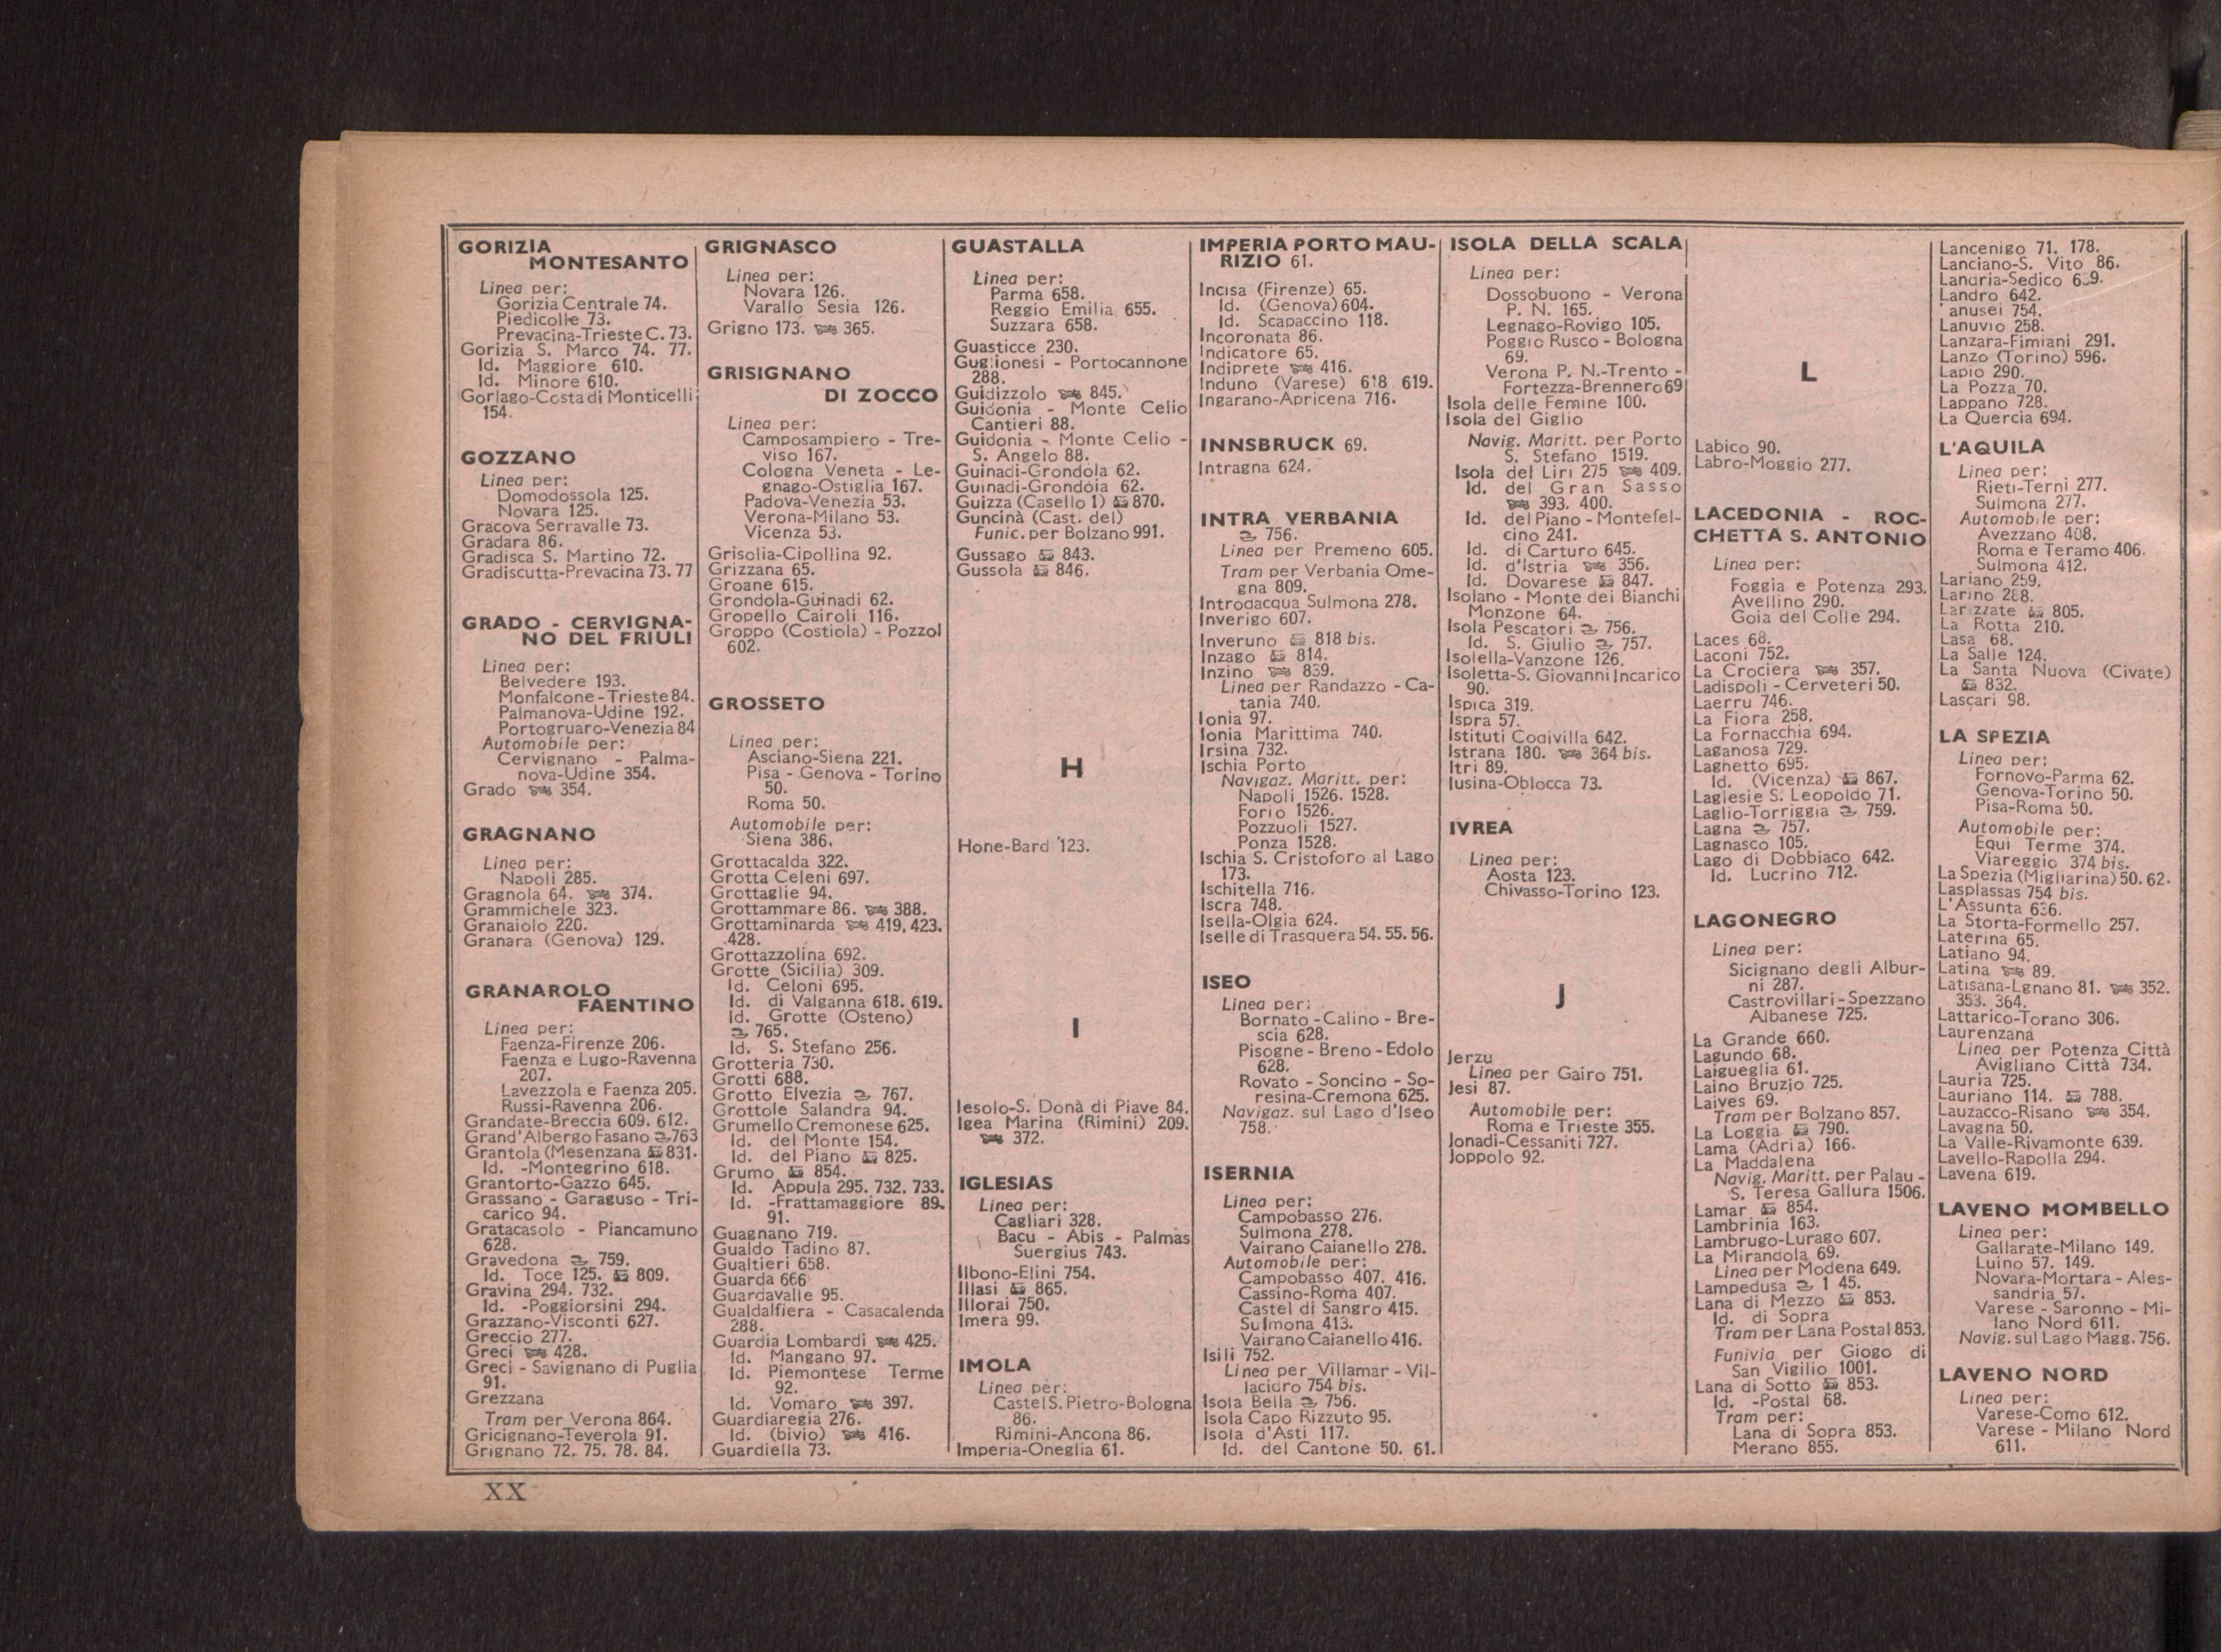 GORIZIA
MONTESANTO
Linea per:
Gorizia Centrale 74.
Piedicolle 73.
Prevacina-Trieste C. 73.
Gorizia S. Marco 74. 77.
Id. Maggiore 610.
Id. Minore 610.
Gorlago-Costa di Monticelli
154.
GOZZANO
Linea per:
Domodossola 125.
Novara 125.
Gracova Serravalle 73.
Gradara 86.
Gradisca S. Martino 72.
Gradiscutta-Prevacina 73. 77
GRADO - CERVIGNA-
NO DEL FRIULI
Linea per:
Belvedere 193.
Monfalcone - Trieste 84.
Palmanova-Udine 192.
Portogruaro-Venezia 84
Automobile per:
Cervignano - Palma-
nova-Udine 354.
Grado 354.
GRAGNANO
Linea per:
Napoli 285.
Gragnola 64. 374.
Grammichele 323.
Granaiolo 220.
Granara (Genova) 129.
GRANAROLO
FAENTINO
Linea per:
Faenza-Firenze 206.
Faenza e Lugo-Ravenna
207.
Lavezzola e Faenza 205.
Russi-Ravenna 206.
Grandate-Breccia 609. 612.
Grand'Albergo Fasano 763
Grantola (Mesenzana 831.
Id. -Montegrino 618.
Grantorto-Gazzo 645.
Grassano - Garaguso - Tri-
carico 94.
Gratacasolo - Piancamuno
628.
Gravedona 759.
Id. Toce 125. 809.
Gravina 294. 732.
Id. -Poggiorsini 294.
Grazzano-Visconti 627.
Greccio 277.
Greci 428.
Greci - Savignano di Puglia
91.
Grezzana
Tram per Verona 864.
Gricignano-Teverola 91.
Grignano 72. 75. 78. 84.
GRIGNASCO
Linea per:
Novara 126.
Varallo Sesia 126.
Grigno 173. 365.
GRISIGNANO
DI ZOCCO
Linea per:
Camposampiero - Tre-
viso 167.
Cologna Veneta - Le-
gnago-Ostiglia 167.
Padova-Venezia 53.
Verona-Milano 53.
Vicenza 53.
Grisolia-Cipollina 92.
Grizzana 65.
Groane 615.
Grondola-Guinadi 62.
Gropello Cairoli 116.
Groppo (Costiola) - Pozzol
602.
GROSSETO
Linea per:
Asciano-Siena 221.
Pisa - Genova - Torino
50.
Roma 50.
Automobile per:
Siena 386.
Grottacalda 322.
Grotta Celeni 697.
Grottaglie 94.
Grottammare 86. 388.
Grottaminarda 419. 423.
428.
Grottazzolina 692.
Grotte (Sicilia) 309.
Id. Celoni 695.
Id. di Valganna 618. 619.
Id. Grotte (Osteno)
765.
Id. S. Stefano 256.
Grotteria 730.
Grotti 688.
Grotto Elvezia 767.
Grottole Salandra 94.
Grumello Cremonese 625.
Id. del Monte 154.
Id. del Piano 825.
Grumo 854.
Id. Appula 295. 732. 733.
Id. -Frattamaggiore 89.
91.
Guagnano 719.
Gualdo Tadino 87.
Gualtieri 658.
Guarda 666
Guardavalle 95.
Gualdalfiera - Casacalenda
288.
Guardia Lombardi 425.
Id. Mangano 97.
Id. Piemontese Terme
92.
Id. Vomaro 397.
Guardiaregia 276.
Id. (bivio) 416.
Guardiella 73.
GUASTALLA
Linea per:
Parma 658.
Reggio Emilia 655.
Suzzara 658.
Guasticce 230.
Guglionesi - Portocannone
288.
Guidizzolo 845.
Guidonia - Monte Celio
Cantieri 88.
Guidonia - Monte Celio -
S. Angelo 88.
Guinadi-Grondola 62.
Guinadi-Grondoia 62.
Guizza (Casello 1) 870.
Guncinà (Cast. del)
Funic. per Bolzano 991.
Gussago 843.
Gussola 846.
H
Hone-Bard 123.
I
Iesolo-S. Donà di Piave 84.
Igea Marina (Rimini) 209.
372.
IGLESIAS
Linea per:
Cagliari 328.
Bacu - Abis - Palmas
Suergius 743.
Ilbono-Elini 754.
Illasi 865.
Illorai 750.
Imera 99.
IMOLA
Linea per:
Castel S. Pietro-Bologna
86.
Rimini-Ancona 86.
Imperia-Oneglia 61.
IMPERIA PORTO MAU-
RIZIO 61.
Incisa (Firenze) 65.
Id. (Genova) 604.
Id. Scapaccino 118.
Incoronata 86.
Indicatore 65.
Indiprete 416.
Induno (Varese) 618 619.
Ingarano-Apricena 716.
INNSBRUCK 69.
Intragna 624.
INTRA VERBANIA
756.
Linea per Premeno 605.
Tram per Verbania Ome-
gna 809.
Introdacqua Sulmona 278.
Inverigo 607.
Inveruno 818 bis.
Inzago 814.
Inzino 839.
Linea per Randazzo - Ca-
tania 740.
Ionia 97.
Ionia Marittima 740.
Irsina 732.
Ischia Porto
Navigaz. Maritt. per:
Napoli 1526. 1528.
Forio 1526.
Pozzuoli 1527.
Ponza 1528.
Ischia S. Cristoforo al Lago
173.
Ischitella 716.
Iscra 748.
Isella-Olgia 624.
Iselle di Trasquera 54. 55. 56.
ISEO
Linea per:
Bornato - Calino - Bre-
scia 628.
Pisogne - Breno - Edolo
628.
Rovato - Soncino - So-
resina-Cremona 625.
Navigaz. sul Lago d'Iseo
758.
ISERNIA
Linea per:
Campobasso 276.
Sulmona 278.
Vairano Caianello 278.
Automobile per:
Campobasso 407. 416.
Cassino-Roma 407.
Castel di Sangro 415.
Sulmona 413.
Vairano Caianello 416.
Isili 752.
Linea per Villamar - Vil-
lacidro 754 bis.
Isola Bella 756.
Isola Capo Rizzuto 95.
Isola d'Asti 117.
Id. del Cantone 50. 61.
ISOLA DELLA SCALA
Linea per:
Dossobuono - Verona
P. N. 165.
Legnago-Rovigo 105.
Poggio Rusco - Bologna
69.
Verona P. N.-Trento -
Fortezza-Brennero 69
Isola delle Femine 100.
Isola del Giglio
Navig. Maritt. per Porto
S. Stefano 1519.
Isola del Liri 275 409.
Id. del Gran Sasso
393. 400.
Id. del Piano - Montefel-
cino 241.
Id. di Carturo 645.
Id. d'Istria 356.
Id. Dovarese 847.
Isolano - Monte dei Bianchi
Monzone 64.
Isola Pescatori 756.
Id. S. Giulio 757.
Isolella-Vanzone 126.
Isoletta-S. Giovanni Incarico
90.
Ispica 319.
Ispra 57.
Istituti Codivilla 642.
Istrana 180. 364 bis.
Itri 89.
Iusina-Oblocca 73.
IVREA
Linea per:
Aosta 123.
Chivasso-Torino 123.
J
Jerzu
Linea per Gairo 751.
Jesi 87.
Automobile per:
Roma e Trieste 355.
Jonadi-Cessaniti 727.
Joppolo 92.
L
Labico 90.
Labro-Moggio 277.
LACEDONIA - ROC-
CHETTA S. ANTONIO
Linea per:
Foggia e Potenza 293.
Avellino 290.
Goia del Colle 294.
Laces 68.
Laconi 752.
La Crociera 357.
Ladispoli - Cerveteri 50.
Laerru 746.
La Fiora 258.
La Fornacchia 694.
Laganosa 729.
Laghetto 695.
Id. (Vicenza) 867.
Laglesie S. Leopoldo 71.
Laglio-Torriggia 759.
Lagna 757.
Lagnasco 105.
Lago di Dobbiaco 642.
Id. Lucrino 712.
LAGONEGRO
Linea per:
Sicignano degli Albur-
ni 287.
Castrovillari - Spezzano
Albanese 725.
La Grande 660.
Lagundo 68.
Laigueglia 61.
Laino Bruzio 725.
Laives 69.
Tram per Bolzano 857.
La Loggia 790.
Lama (Adria) 166.
La Maddalena
Navig. Maritt. per Palau -
S. Teresa Gallura 1506.
Lamar 854.
Lambrinia 163.
Lambrugo-Lurago 607.
La Mirandola 69.
Linea per Modena 649.
Lampedusa 1 45.
Lana di Mezzo 853.
Id. di Sopra
Tram per Lana Postal 853.
Funivia per Giogo di
San Vigilio 1001.
Lana di Sotto 853.
Id. -Postal 68.
Tram per:
Lana di Sopra 853.
Merano 855.
Lancenigo 71. 178.
Lanciano-S. Vito 86.
Landria-Sedico
Landro 642.
anusei 754.
Lanuvio 258.
Lanzara-Fimiani 291.
Lanzo (Torino) 596.
Lapio 290.
La Pozza 70.
Lappano 728.
La Quercia 694.
L'AQUILA
Linea per:
Rieti-Terni 277.
Sulmona 277.
Automobile per:
Avezzano 408.
Roma e Teramo 406.
Sulmona 412.
Lariano 259.
Larino 288.
Larizzate 805.
La Rotta 210.
Lasa 68.
La Salle 124.
La Santa Nuova (Civate)
832.
Lascari 98.
LA SPEZIA
Linea per:
Fornovo-Parma 62.
Genova-Torino 50.
Pisa-Roma 50.
Automobile per:
Equi Terme 374.
Viareggio 374 bis.
La Spezia (Migliarina) 50. 62.
Lasplassas 754 bis.
L'Assunta 636.
La Storta-Formello 257.
Laterina 65.
Latiano 94.
Latina 89.
Latisana-Lgnano 81. 352.
353. 364.
Lattarico-Torano 306.
Laurenzana
Linea per Potenza Città
Avigliano Città 734.
Lauria 725.
Lauriano 114. 788.
Lauzacco-Risano 354.
Lavagna 50.
La Valle-Rivamonte 639.
Lavello-Rapolla 294.
Lavena 619.
LAVENO MOMBELLO
Linea per:
Gallarate-Milano 149.
Luino 57. 149.
Novara-Mortara - Ales-
sandria 57.
Varese - Saronno - Mi-
lano Nord 611.
Navig. sul Lago Magg. 756.
LAVENO NORD
Linea per:
Varese-Como 612.
Varese - Milano Nord
611.
XX